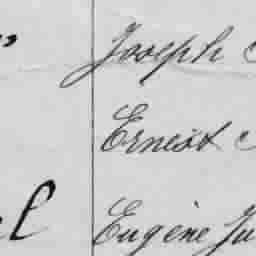 Joseph
Ernest
Eugène Ju